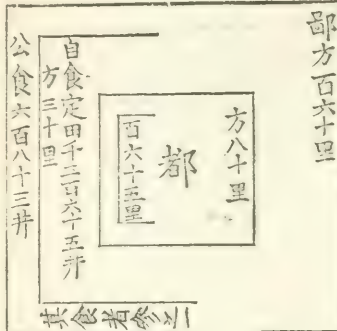 鄙方百六十里
方八十里
都
百六十五里
自食定田千二百六十五井
方三十里
公食六百八十三井
其食者參之一